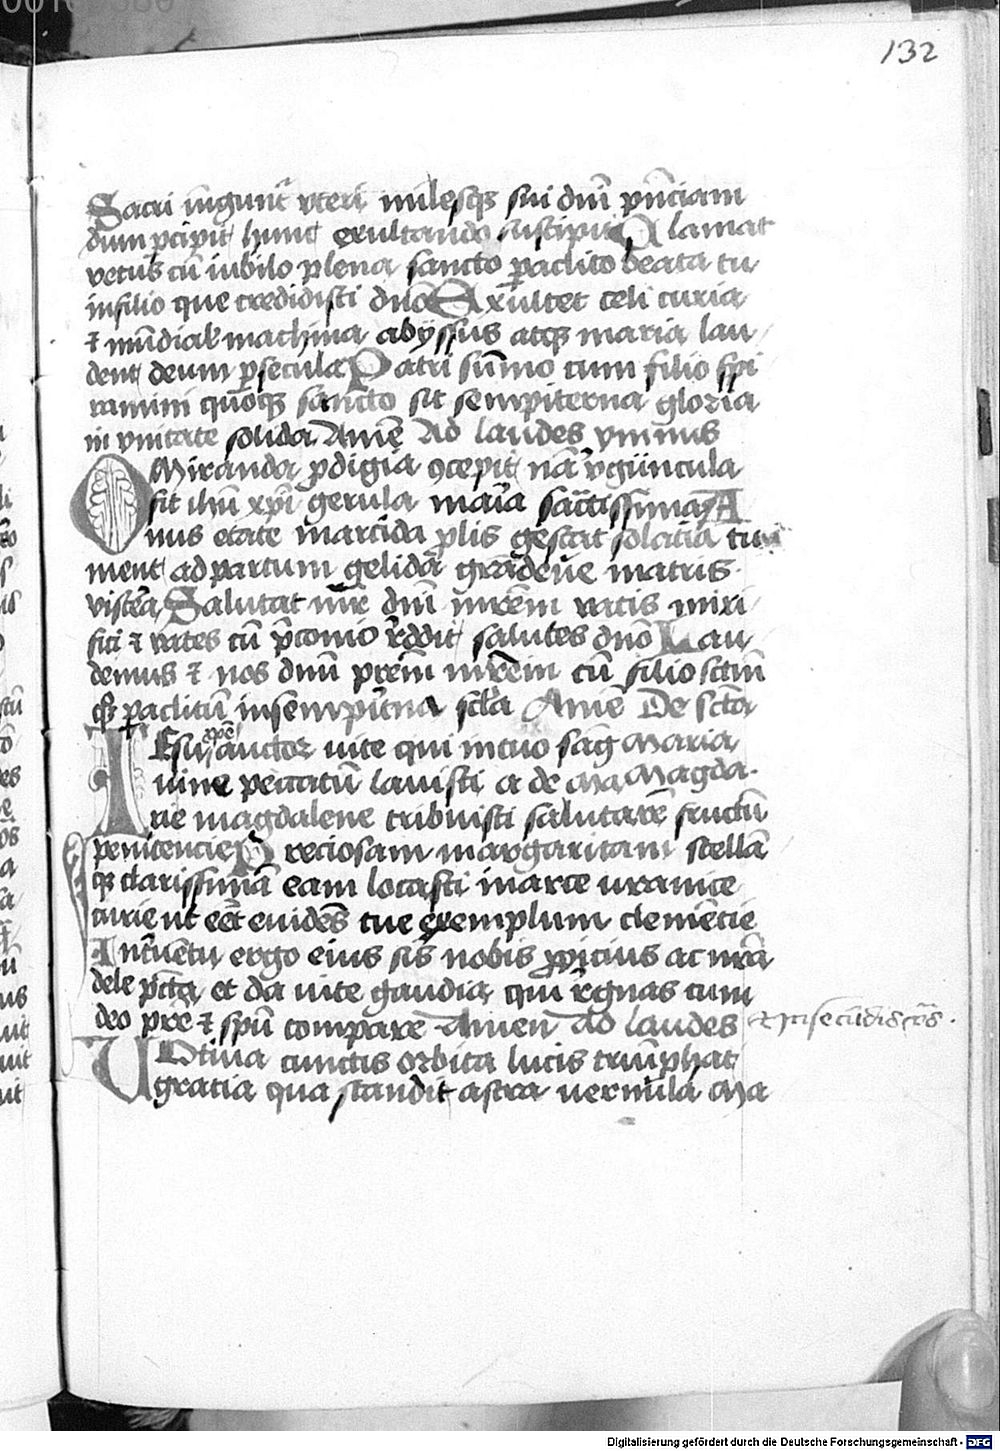 132
Sacri iūgunt᷑ vteri milesqꝫ sui dnī pn̄ciam
dum ꝑcipit hunc exultando suscipit Clamat
vetus cū iubilo plena sancto ꝑaclito beata tu
in filio que credidisti dn̄o Exultet celi curia
⁊ mūdialꝭ machina abyssus atqꝫ maria lau
dent deum ꝑ secula Patri sūmo cum filio spi
ramini quoqꝫ sancto sit sempiterna gloria
in vnitate solida Amē Ad laudes ymnus
O Miranda ꝓdigia ꝯcepit nā v̓gūncula
fit ihū xp̄i gerula maīa sāctissima A
nus etate marcida ꝓlis gestat solacia tum
ment ad partum gelida grādeue matris
viscēa Salutat mr̄ dn̄i mr̄em vatis miri
fici ⁊ vates cū p̄conio r̓ddit salutes dn̄o Lau
demus ⁊ nos dnm̄ prēm mr̄em cū filio sctm̄
qꝫ paclitū in sempit̓na scl̄a Amē De sctā
Iesu xpē auctor vite qui in tuo sāg Maria
uine peccatū lavisti a de Ma Magda
rie magdalene tribuisti salutarē fructū
penitencie Preciosam margaritam stellā
qꝫ clarissimā eam locasti in arce uranice
curie ut eēt euidēs tue exemplum clemēcie
Intuētu ergo eius sis nobis ꝓpicius ac nr̄a
dele pctā et da uite gaudia qui r̓gnas cum
deo prē ⁊ spū compare Amen Ad laudes
⁊ in secūdis vēs
VOtiua cunctis orbita lucis triūphat
gratia qua scandit astra vernula Ma
Digitalisierung gefördert durch die Deutsche Forschungsgemeinschaft - DFG